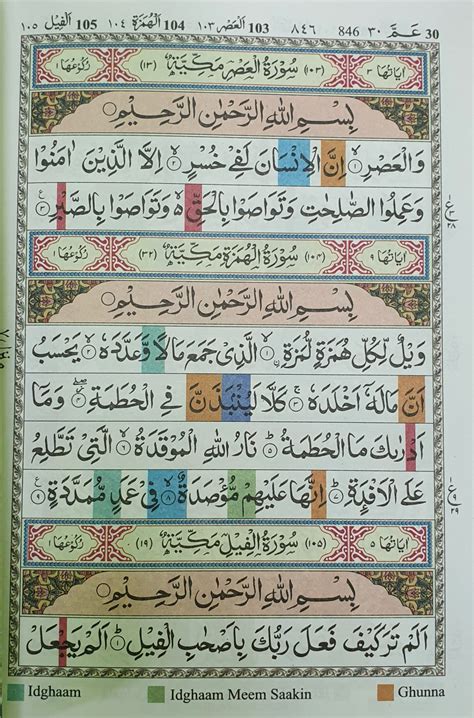 30 عَمَّ ٣٠ 846 ٨٤٦ 103 اَلْعَصْر ١٠٣ 104 اَلْهُمَزَة ١٠٤ 105 اَلْفِيل ١٠٥
اٰيَاتُهَا ٣ (١٠٣) سُوْرَةُ الْعَصْرِ مَكِّيَّةٌ (١٣) رُكُوْعُهَا ١
بِسْمِ اللهِ الرَّحْمٰنِ الرَّحِيْمِ
وَالْعَصْرِ ۙ١ اِنَّ الْاِنْسَانَ لَفِيْ خُسْرٍ ۙ٢ اِلَّا الَّذِيْنَ اٰمَنُوْا
وَعَمِلُوا الصّٰلِحٰتِ وَتَوَاصَوْا بِالْحَقِّ ۙ۬ وَتَوَاصَوْا بِالصَّبْرِ ٣
اٰيَاتُهَا ٩ (١٠٤) سُوْرَةُ الْهُمَزَةِ مَكِّيَّةٌ (٣٢) رُكُوْعُهَا ١
بِسْمِ اللهِ الرَّحْمٰنِ الرَّحِيْمِ
وَيْلٌ لِّكُلِّ هُمَزَةٍ لُّمَزَةِ ۙ١ الَّذِيْ جَمَعَ مَالًا وَّعَدَّدَهٗ ۙ٢ يَحْسَبُ
اَنَّ مَالَهٗٓ اَخْلَدَهٗ ۚ٣ كَلَّا لَيُنْۢبَذَنَّ فِي الْحُطَمَةِ ۖ٤ وَمَآ
اَدْرٰىكَ مَا الْحُطَمَةُ ۗ٥ نَارُ اللهِ الْمُوْقَدَةُ ۙ٦ الَّتِيْ تَطَّلِعُ
عَلَى الْاَفْـِٕدَةِ ۗ٧ اِنَّهَا عَلَيْهِمْ مُّؤْصَدَةٌ ۙ٨ فِيْ عَمَدٍ مُّمَدَّدَةٍ ٩
اٰيَاتُهَا ٥ (١٠٥) سُوْرَةُ الْفِيْلِ مَكِّيَّةٌ (١٩) رُكُوْعُهَا ١
بِسْمِ اللهِ الرَّحْمٰنِ الرَّحِيْمِ
اَلَمْ تَرَ كَيْفَ فَعَلَ رَبُّكَ بِاَصْحٰبِ الْفِيْلِ ۗ١ اَلَمْ يَجْعَلْ
Idghaam Idghaam Meem Saakin Ghunna